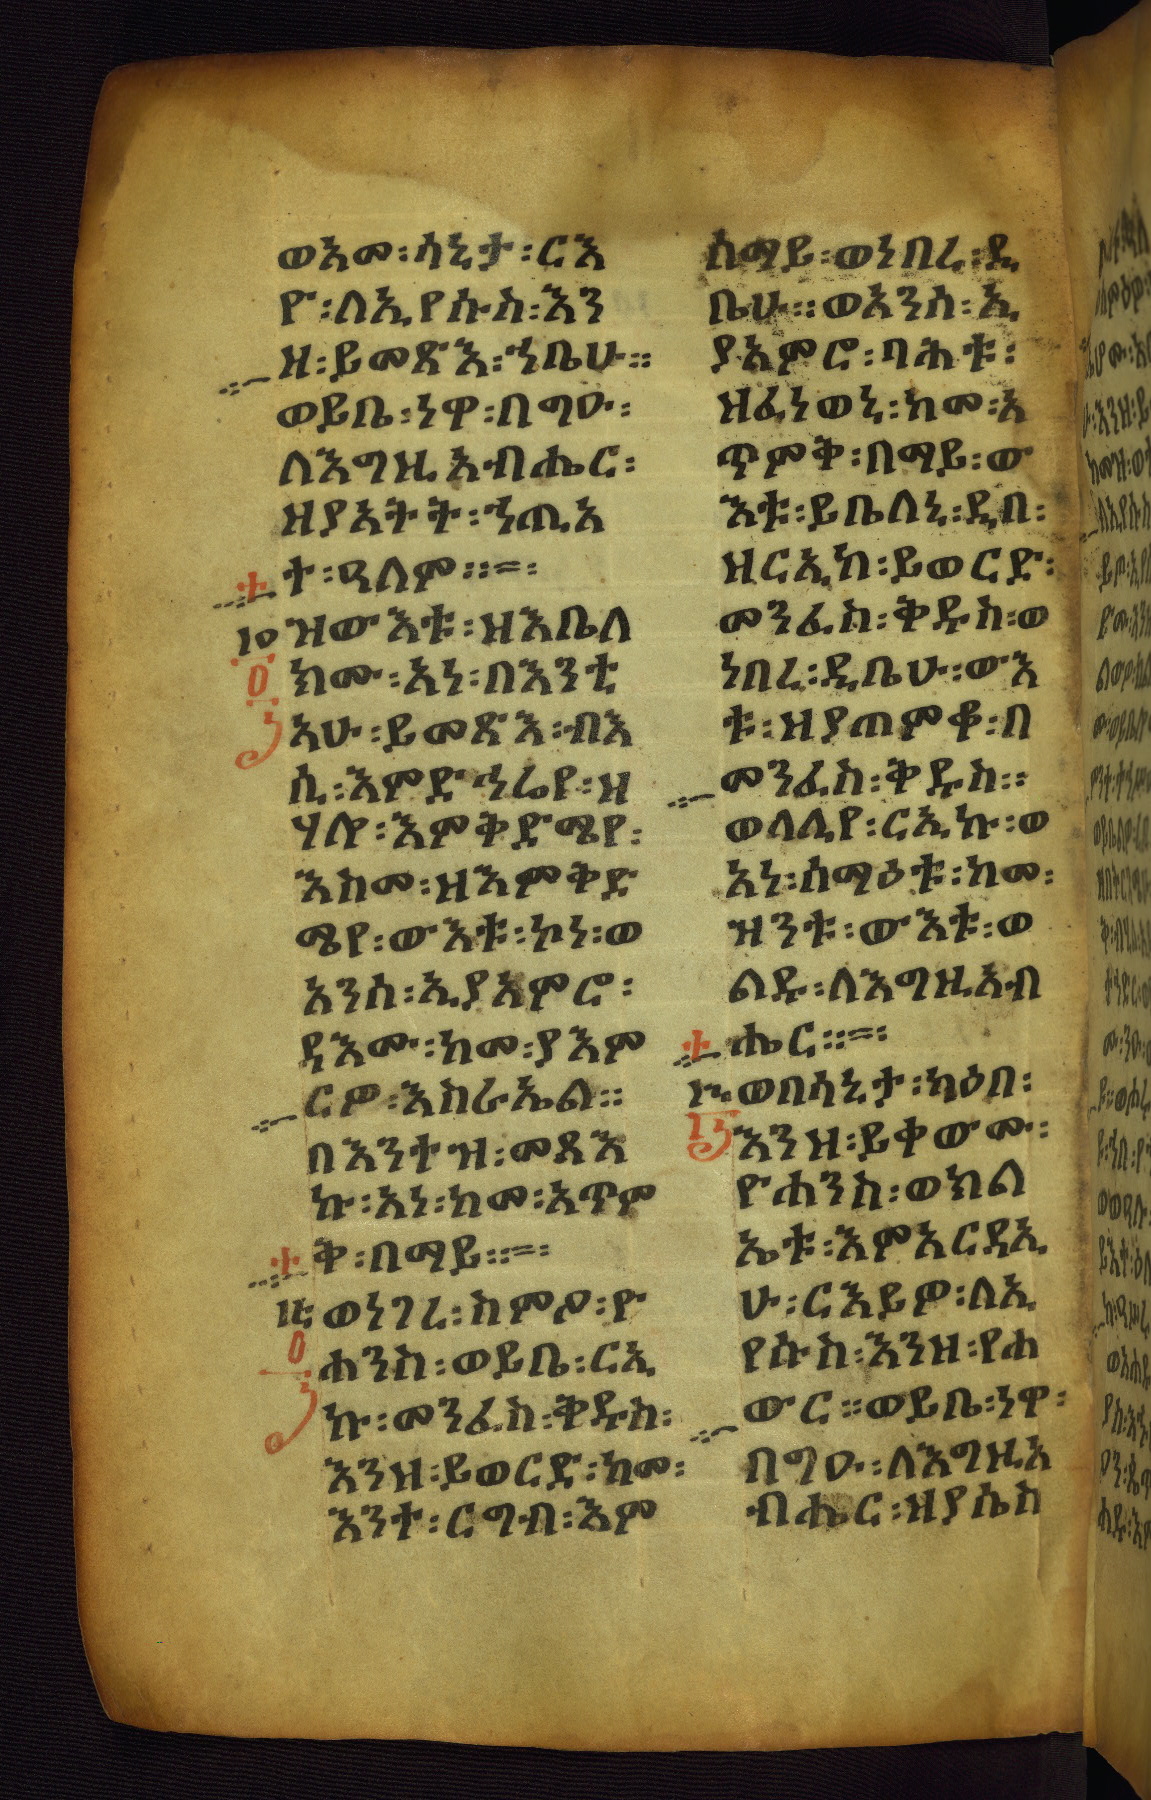 ወእመ፡ሳኒታ፡ርእ
ዮ፡ለኢየሱስ፡እን
ዘ፡ይመጽእ፡ኀቤሁ።
ወይቤ፡ነዋ፡በግዑ፡
ለእግዚአብሔር፡
ዘያአትት፡ኀጢአ
ተ፡ዓለም።=፡
ዝውእቱ፡ዘእቤለ
ክሙ፡አነ፡በእንቲ
አሁ፡ይመጽእ፡ብእ
ሲ፡እምድኅሬየ፡ዘ
ሃሎ፡እምቅድሜየ፡
እስመ፡ዘእምቅድ
ሜየ፡ውእቱ፡ኮነ፡ወ
አንሰ፡ኢያአምሮ፡
ዳእሙ፡ከመ፡ያእም
ርዎ፡እስራኤል።
በእንተዝ፡መጻእ
ኩ፡አነ፡ከመ፡አጥም
ቅ፡በማይ።=፡
ወነገረ፡ስምዖ፡ዮ
ሐንስ፡ወይቤ፡ርኢ
ኩ፡መንፈስ፡ቅዱስ፡
እንዘ፡ይወርድ፡ከመ፡
እንተ፡ርግብ፡እም
ሰማይ፡ወነበረ፡ዲ
ቤሁ።ወአንሰ፡ኢ
ያአምሮ፡ባሕቱ፡
ዝፈነወኒ፡ከመ፡አ
ጥምቅ፡በማይ፡ው
እቱ፡ይቤለኒ፡ዲበ፡
ዘርኢከ፡ይወርድ፡
መንፈስ፡ቅዱስ፡ወ
ነበረ፡ዲቤሁ፡ውእ
ቱ፡ዝያጠምቆ፡በ
መንፈስ፡ቅዱስ።
ወለሊየ፡ርኢኩ፡ወ
አነ፡ሰማዕቱ፡ከመ፡
ዝንቱ፡ውእቱ፡ወ
ልዱ፡ለእግዚአብ
ሔር።=፡
፲፰ወበሳኒታ፡ካዕበ፡
እንዝ፡ይቀውሙ፡
ዮሐንስ፡ወክል
ኤቱ፡እምአርዳኢ
ሁ፡ርእይዎ፡ለኢ
የሱስ፡እንዘ፡የሐ
ውር።ወይቤ፡ነዋ፡
በግዑ፡ለእግዚአ
ብሔር፡ዘያሴስ